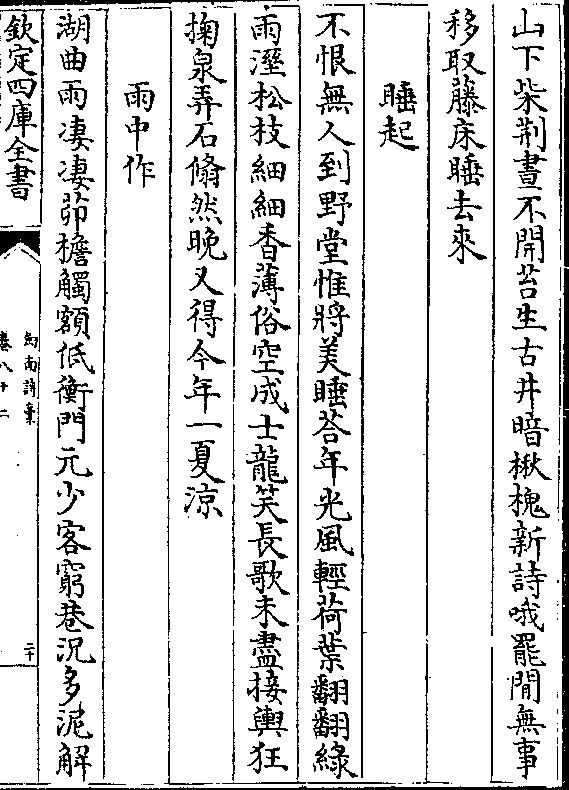 山下柴荆晝不開苔生古井暗楸槐新詩哦罷閒無事
移取藤床睡去來
睡起
不恨無人到野堂惟將美睡荅年光風輕荷葉翻翻緑
雨溼松枝細細香薄俗空成士龍笑長歌未盡接輿狂
掬泉弄石翛然晚又得今年一夏凉
雨中作
湖曲雨凄凄茆檐觸額低衡門元少客窮巷况多泥解
欽定四庫全書
劒南詩藁
卷八十二
二十